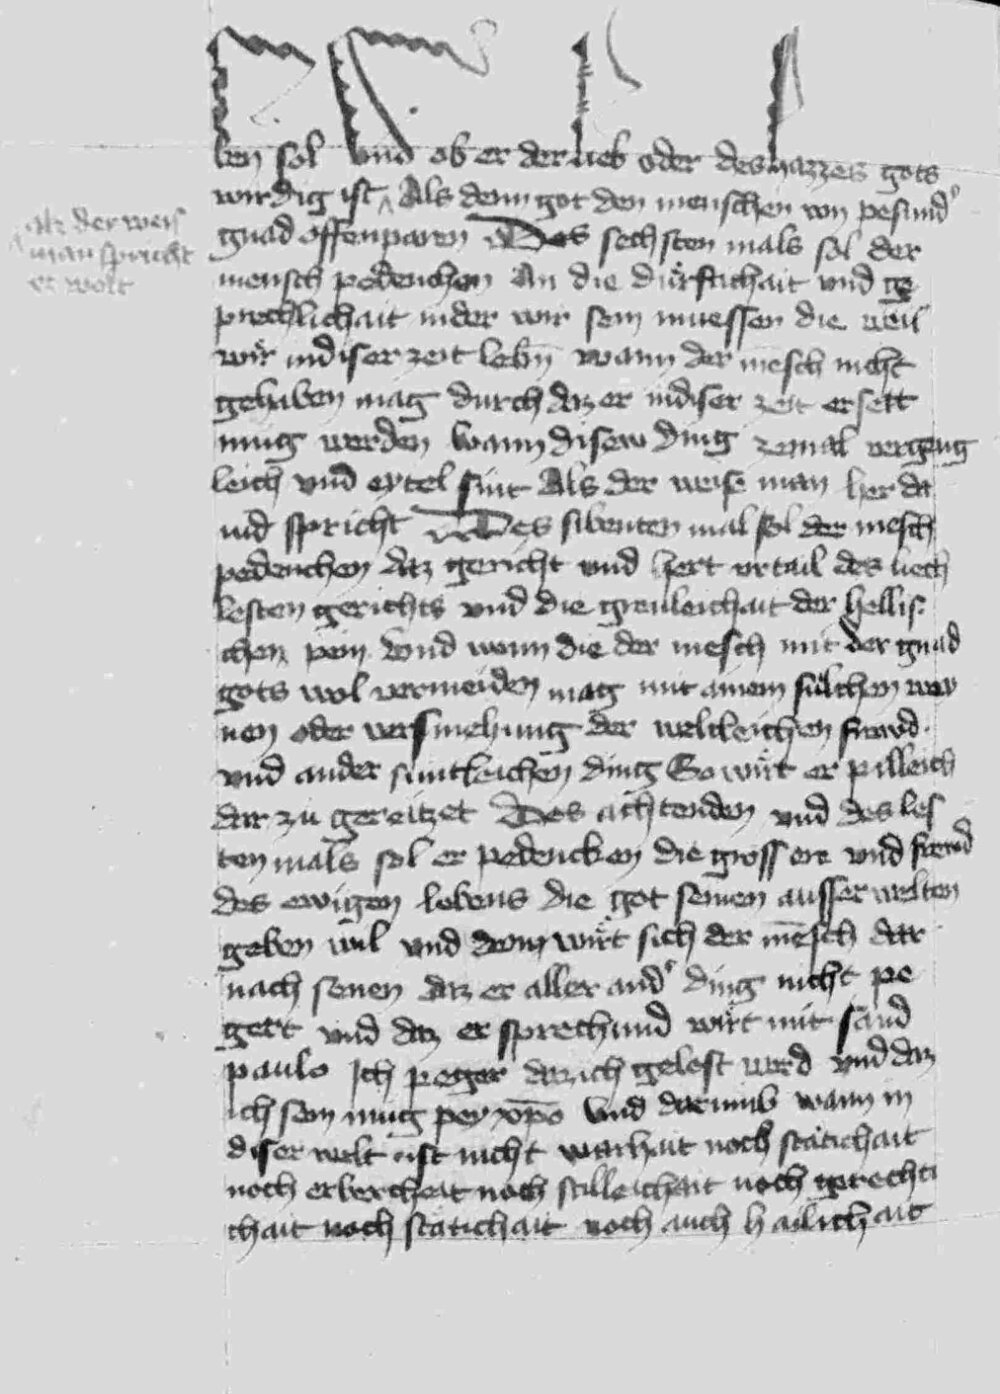 ben sol vnd ob er der lieb oder des hazzes gots
wirdig ist Als denn got den menschen von pesund'
gnad offenparen Des sechsten mals sol der
mensch pedenchen An die dürftichait vnd ge
prechlichait in der wir sein muessen die weil
wir in diser zeit lebn̄ wann der mēsch nicht
gehaben mag durch daz er in diser zeit ersett
mug werden wann disew ding zemal vergeng
leich vnd eytel sint Als der weise man her da
nid spricht Des sibenten mal sol der mēsch
pedenchen daz gericht vnd hert vrtail des
lesten gerichts vnd die greuleichait der hellis
chen pein vnd wann die der mesch mit der gnad
gots wol vermeiden mag mit ainem sülchen way
nen oder versmehung der weltleichen frewd
vnd ander suntleichen ding So wirt er pilleich
dar zu gereitzet Des achtenden vnd des les
ten mals sol er pedencken die gross ere vnd frewd
des ewigen lebens die got seinen ausser welten
geben wil vnd denn wirt sich der mēsch dar
nach senen daz er aller and' ding nicht pe
gert vnd daz er sprechund wirt mit sand
paulo Ich peger daz ich gelest werd vnd daz
ich sein mug pey xp̄o vnd darumb wann in
diser welt ist nicht warhait noch stätichait
noch erberchait noch stilleichait noch gerechti
chait noch stätichait noch auch hailichait
als der weis
man spricht
er wolt